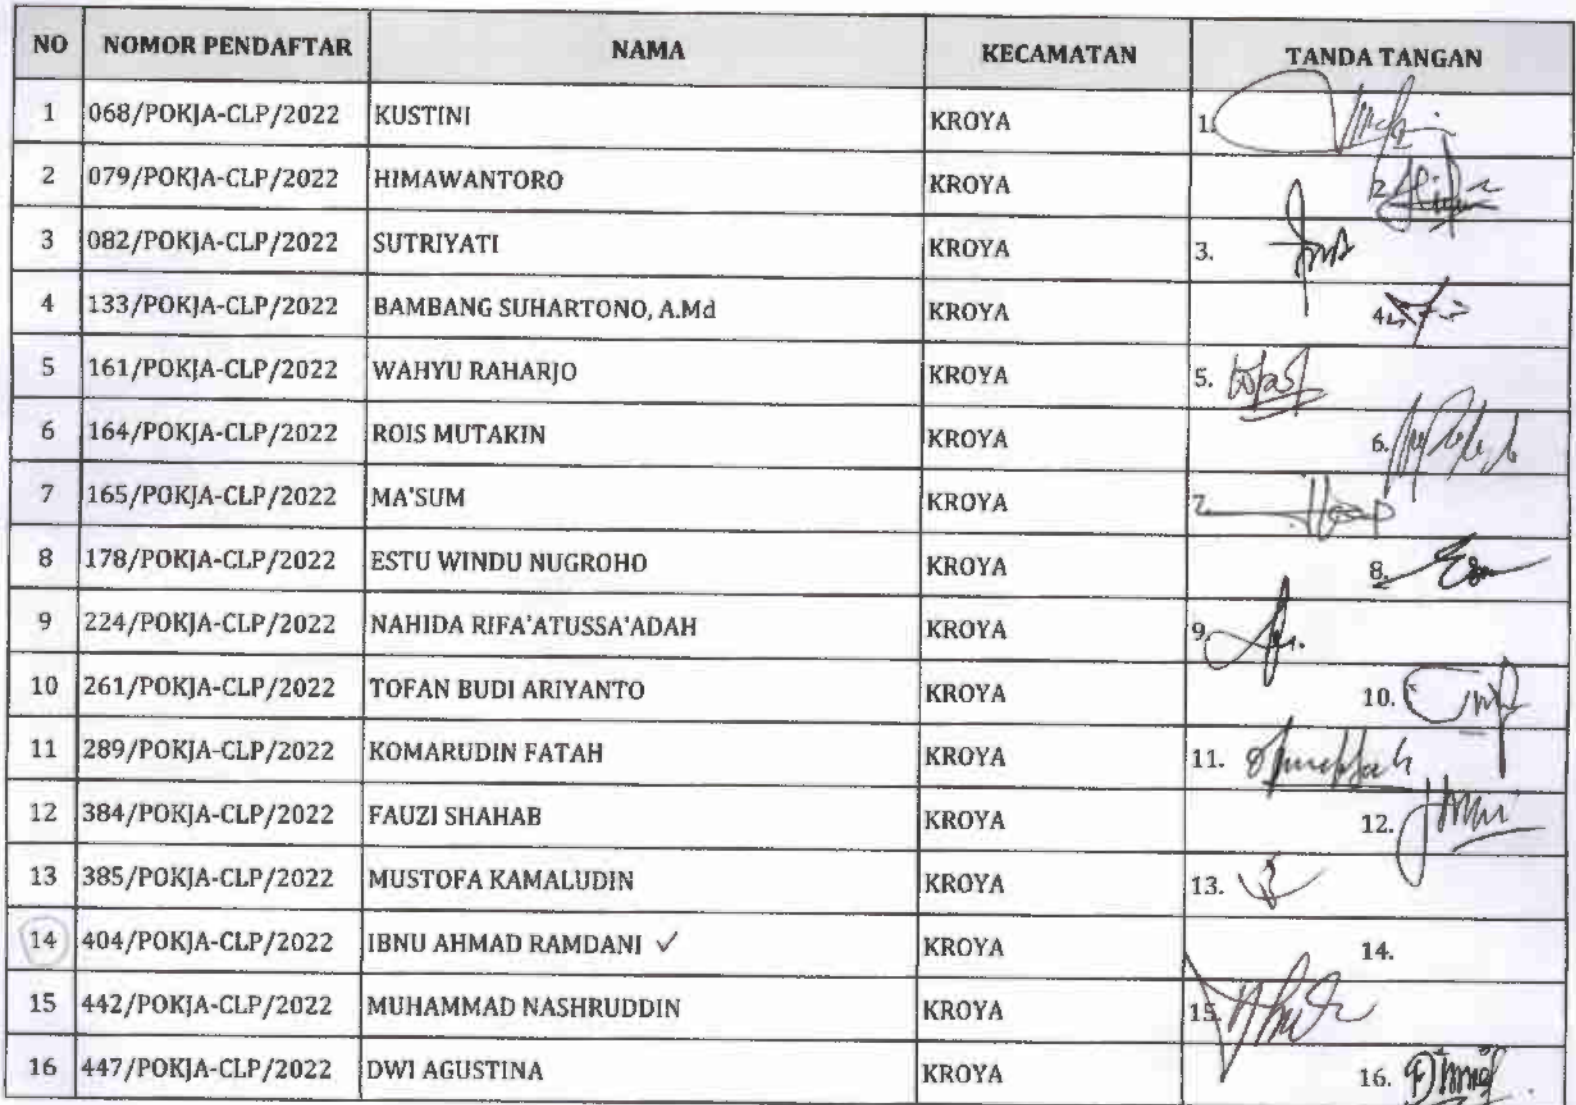 NO NOMOR PENDAFTAR NAMA KECAMATAN TANDA TANGAN
1 068/POKJA-CLP/2022 KUSTINI KROYA 1.
2 079/POKJA-CLP/2022 HIMAWANTORO KROYA 2.
3 082/POKJA-CLP/2022 SUTRIYATI KROYA 3.
4 133/POKJA-CLP/2022 BAMBANG SUHARTONO, A.Md KROYA 4.
5 161/POKJA-CLP/2022 WAHYU RAHARJO KROYA 5.
6 164/POKJA-CLP/2022 ROIS MUTAKIN KROYA 6.
7 165/POKJA-CLP/2022 MA'SUM KROYA 7.
8 178/POKJA-CLP/2022 ESTU WINDU NUGROHO KROYA 8.
9 224/POKJA-CLP/2022 NAHIDA RIFA'ATUSSA'ADAH KROYA 9.
10 261/POKJA-CLP/2022 TOFAN BUDI ARIYANTO KROYA 10.
11 289/POKJA-CLP/2022 KOMARUDIN FATAH KROYA 11.
12 384/POKJA-CLP/2022 FAUZI SHAHAB KROYA 12.
13 385/POKJA-CLP/2022 MUSTOFA KAMALUDIN KROYA 13.
14 404/POKJA-CLP/2022 IBNU AHMAD RAMDANI ✓ KROYA 14.
15 442/POKJA-CLP/2022 MUHAMMAD NASHRUDDIN KROYA 15.
16 447/POKJA-CLP/2022 DWI AGUSTINA KROYA 16.